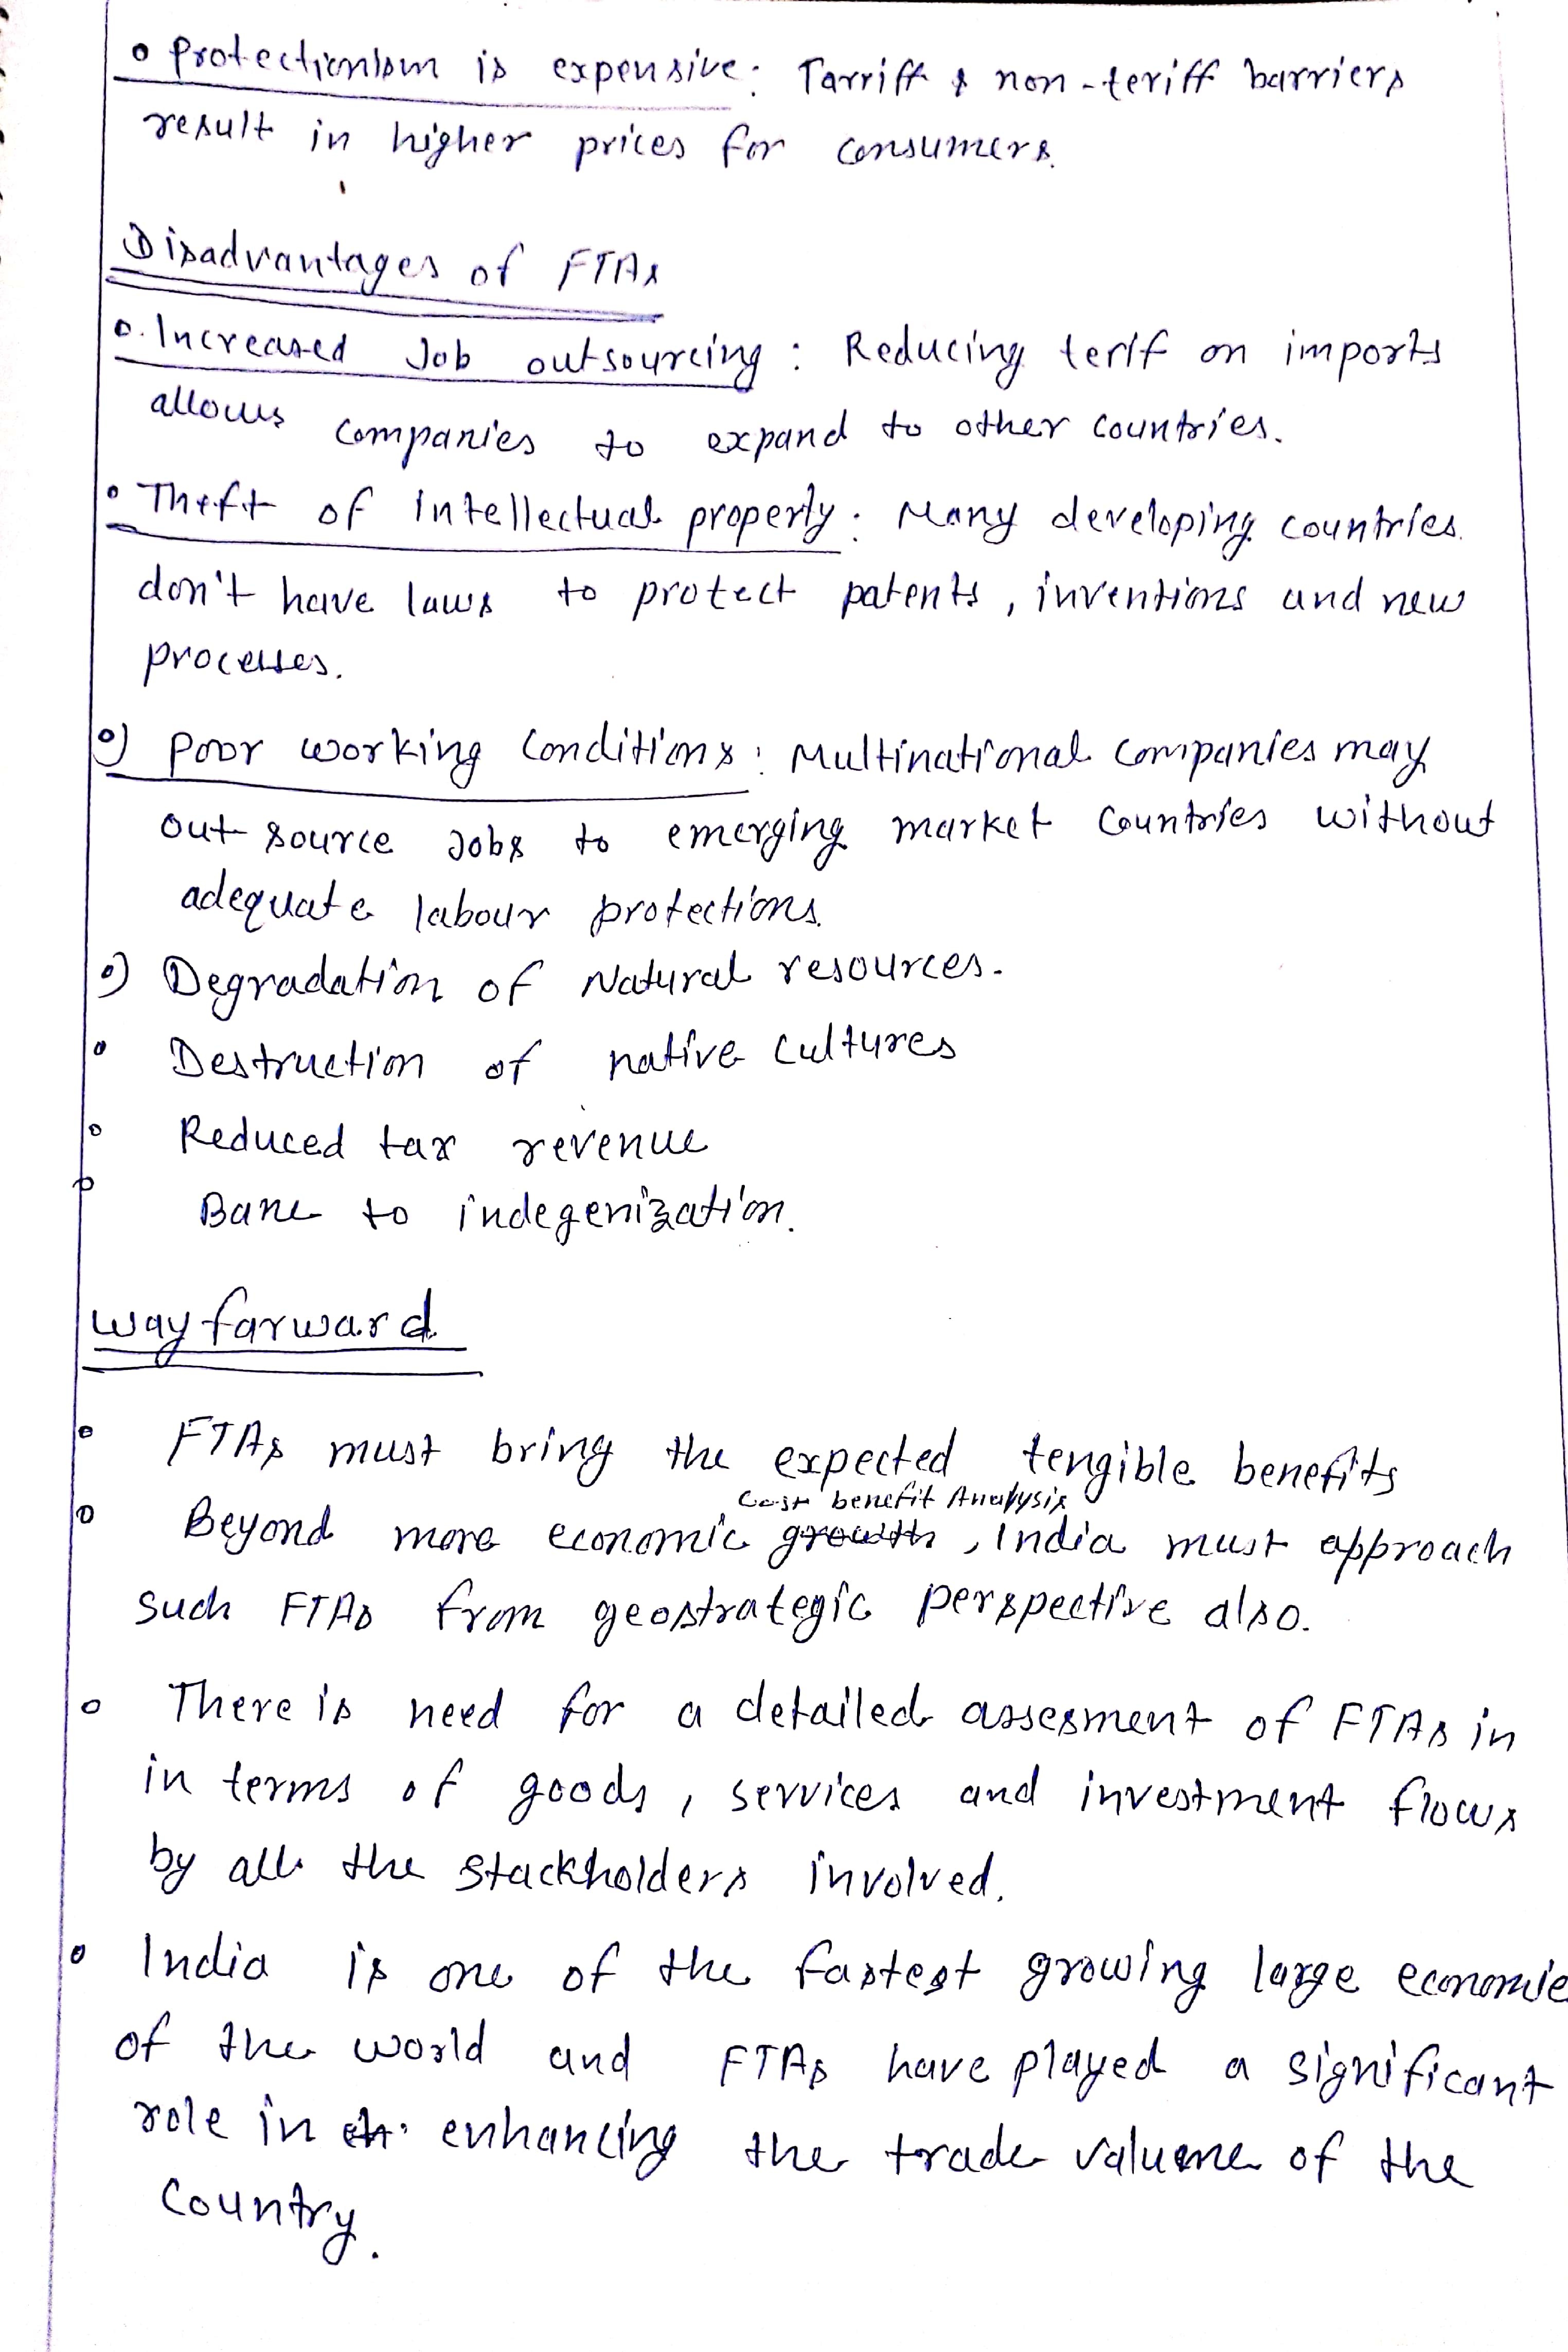 • Protectionism is expensive: Tarriff & non-teriff barriers
result in higher prices for consumers.
Disadvantages of FTAs
•. Increased Job outsourcing : Reducing terif on imports
allows companies to expand to other countries.
• Theft of intellectual property: Many developing countries.
don't have laws to protect patents, inventions and new
processes.
•) Poor working conditions: Multinational companies may
out source Jobs to emerging market countries without
adequate labour protections.
•) Degradation of Natural resources.
• Destruction of native cultures
• Reduced tax revenue
• Bane to indegenization.
way farward
• FTAs must bring the expected tengible benefits
cost benefit Analysis
• Beyond more economic growth, India must approach
such FTAs from geostrategic perspective also.
• There is need for a detailed assesment of FTAs in
in terms of goods, services and investment flows
by all the stackholders involved.
• India is one of the fastest growing large economie
of the world and FTAs have played a significant
role in enhancing the trade valueme of the
Country.